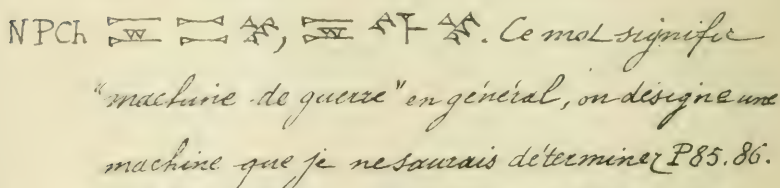 NPCh , . Ce mot signifie
"machine de guerre" en général, ou désigne une
machine que je ne saurais déterminer P 85. 86.